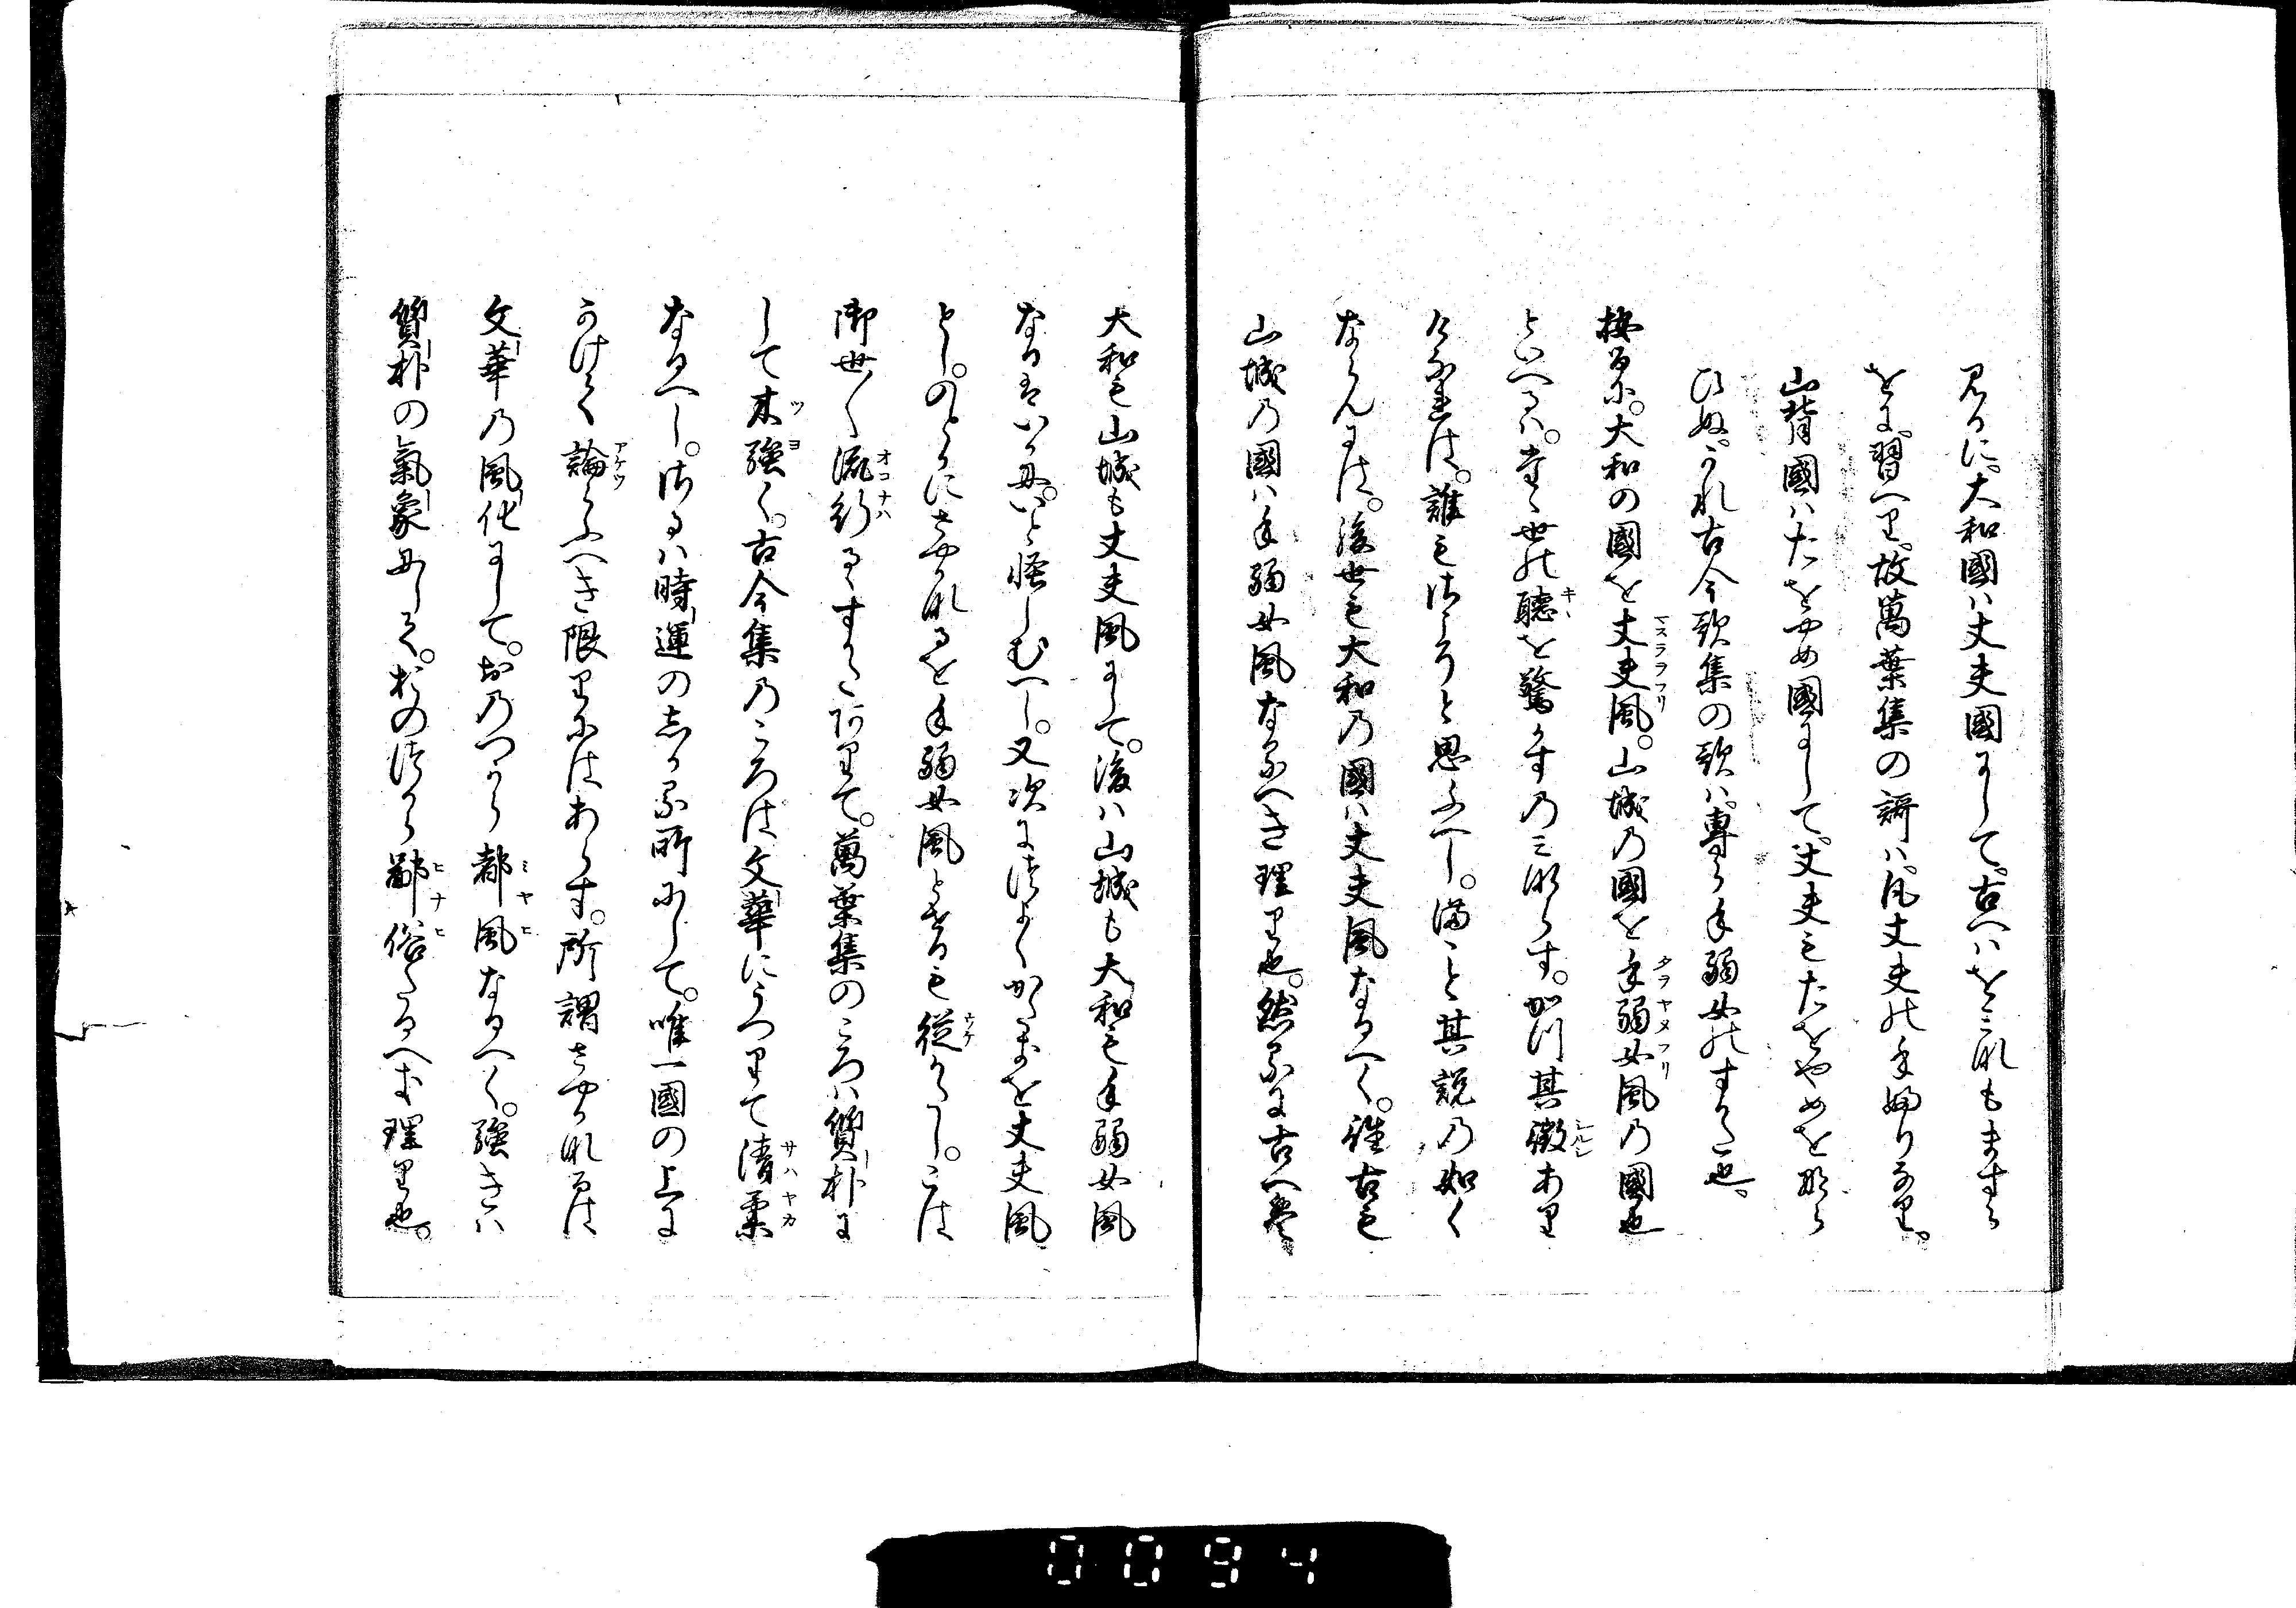 見るに、大和國ハ丈夫國にして、古へハをみなもますら
をに習へり、故萬葉集の謌ハ、凡丈夫の手婦りなり、
山背國ハたをやめ國にして、丈夫もたをやめを那ら
ひぬ、かれ古今歌集の歌ハ、專ら手弱女のすかた也、
按るに、大和の國を丈夫風、山城の國を手弱女風の國也
といへるハ、世の聽を驚かすのミならす、かつ其徴あり
けなれは、誰もさらんと思ふへし、其説の如く
ならんには、後世も大和の國ハ丈夫風なるへく、古も
山城の國ハ手弱女風なるへき理り也、然るに古へ
大和も山城も丈夫風にして、後ハ山城も大和も手弱女風
なるはいかに、と怪しむへし、又次につよくかたきを丈夫風
とし、のとかにさやかなるを手弱女風とせるも從かたし、こは
御世〱流行るゝすかたありて、萬葉集のころハ質朴に
して木強く、古今集のころは文華にうつりて清柔
なるへし、さるハ時運のしかる所にして、唯一國の上に
かけて論らふへき限りにはあらす、所謂さやかなるは
文華の風化にして、おのつから都風なるへく、強きハ
質朴の氣象にして、おのつから鄙俗たるへき理り也、
0094